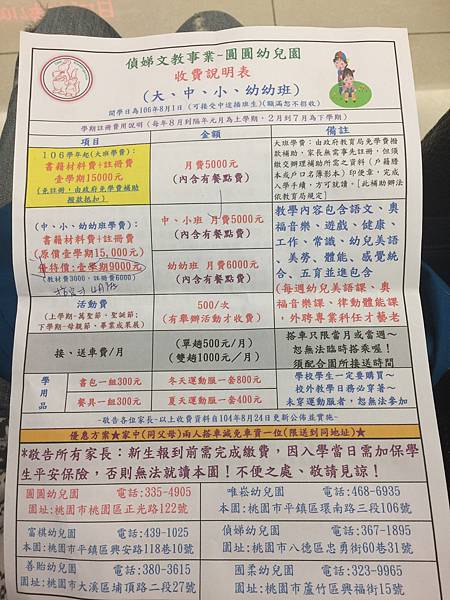 偵娣文教事業-圓圓幼兒園
收費說明表
(大、中、小、幼幼班)
開學日為106年8月1日 (可接受中途插班生)(額滿恕不招收)
學期註冊費用說明 (每年8月到隔年元月為上學期,2月到7月為下學期)
項目 金額 備註
106學年起(大班學費):
書籍材料費+註冊費
壹學期15000元
(免註冊,由政府免學費補助
撥款抵扣)
月費5000元
(內含有餐點費)
大班學費:由政府教育局免學費撥
款補助,家長無需事先註冊,但須
繳交辦理補助所需之資料(戶籍謄
本或戶口名簿影本)印便章,完成
入學手續,方可就讀,[此補助辦法
依教育局規定]
(中、小、幼幼班學費):
書籍材料費+註冊費
(原價壹學期15,000元)
優待價:壹學期9000元
(教材費3000、註冊費6000)
中、小班 月費5000元
(內含有餐點費)
幼幼班 月費6000元
(內含有餐點費)
教學內容包含語文、奧
福音樂、遊戲、健康、
工作、常識、幼兒美語
、美勞、體能、感覺統
合、五育並進包含
(每週幼兒美語課、奧
福音樂課、律動體能課
,外聘專業科任才藝老
活動費
(上學期-萬聖節、聖誕節;
下學期-母親節、畢業成果展)
500/次
(有舉辦活動才收費)
接、送車費/月
(單趟500元/月)
(雙趟1000元/月)
搭車只限當月或當週~
恕無法臨時搭乘喔!
須配合園所接送時間
學用品
書包一組300元
冬天運動服一套800元
餐具一組300元
夏天運動服一套400元
學校學生一定要購買~
校外教學日務必穿著~
未穿運動服者,恕無法參加
-敬告各位家長-以上收費資料自104年8月24日更新公佈並實施-
優惠方案★家中(同父母)兩人搭車減免車資一位(限送到同地址)★
*敬告所有家長:新生報到前需完成繳費,因入學當日需加保學
生平安保險,否則無法就讀本園!不便之處、敬請見諒!
圓圓幼兒園 電話:335-4905
園址:桃園市桃園區正光路122號
唯崧幼兒園 電話:468-6935
本園:桃園市平鎮區環南路三段106號
富棋幼兒園 電話:439-1025
本園:桃園市平鎮區興安路118巷10號
偵娣幼兒園 電話:367-1895
園址:桃園市八德區忠勇街60巷31號
善貽幼兒園 電話:380-3615
園址:桃園市大溪區埔頂路二段27號
園柔幼兒園 電話:323-9965
園址:桃園市蘆竹區興福街15號